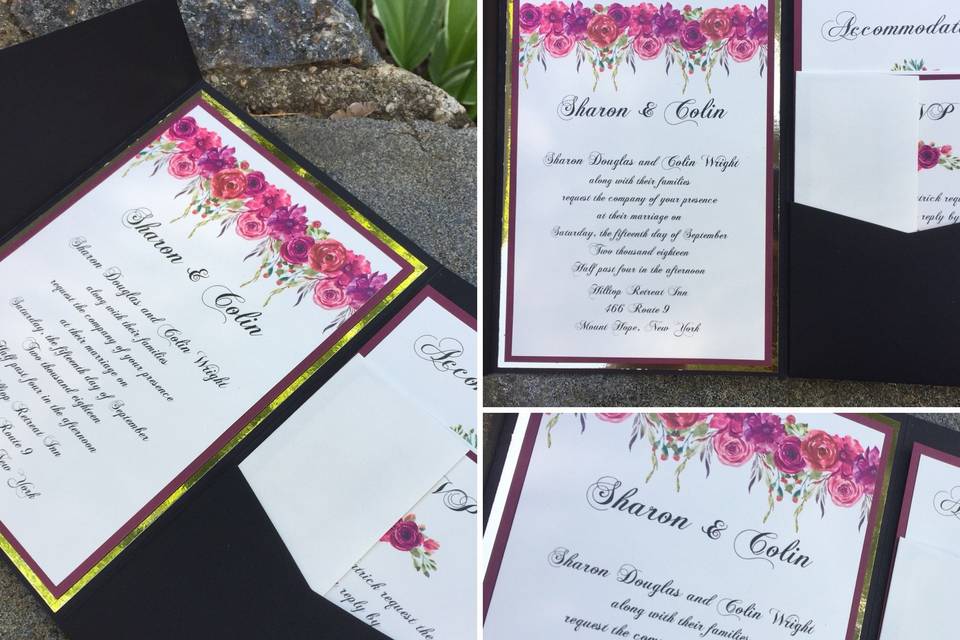 Sharon & Colin
Sharon Douglas and Colin Wright
along with their families
request the company of your presence
at their marriage on
Saturday, the fifteenth day of September
Two thousand eighteen
Half past four in the afternoon
Hilltop Retreat Inn
Route 9
New York
Acco
VP
trick request the
reply by
Sharon & Colin
Sharon Douglas and Colin Wright
along with their families
request the company of your presence
at their marriage on
Saturday, the fifteenth day of September
Two thousand eighteen
Half past four in the afternoon
Hilltop Retreat Inn
466 Route 9
Mount Hope, New York
Accommodati
VP
trick reque
reply by
Sharon & Colin
Sharon Douglas and Colin Wright
along with their families
request the company of your presence
A